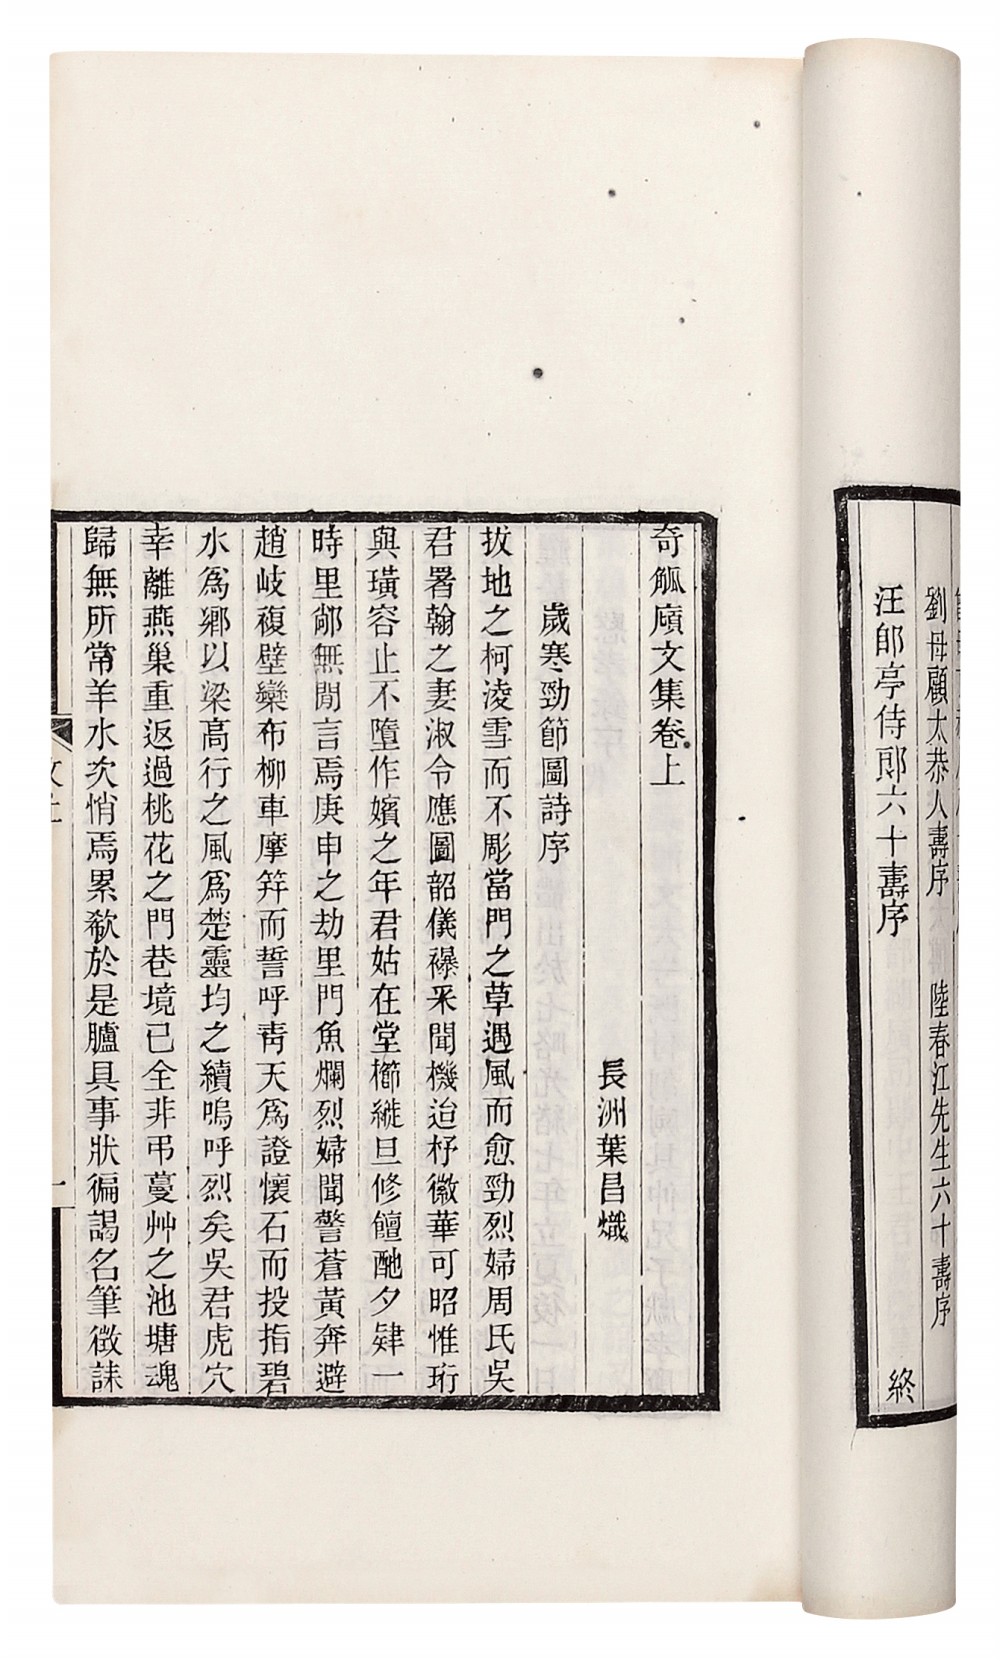 劉母顧太恭人壽序　陸春江先生六十壽序
汪郎亭侍郎六十壽序　終
奇觚廎文集卷上
長洲葉昌熾
歲寒勁節圖詩序
拔地之柯淩雪而不彫當門之草遇風而愈勁烈婦周氏吳
君署翰之妻淑令應圖韶儀襮釆聞機迨杼徽華可昭惟珩
與璜容止不墮作嬪之年君姑在堂櫛縰旦修饘酏夕肄一
時里鄰無閒言焉庚申之劫里門魚爛烈婦聞警蒼黃奔避
趙岐複壁欒布柳車摩笄而誓呼靑天爲證懷石而投指碧
水爲鄉以梁高行之風爲楚靈均之續嗚呼烈矣吳君虎穴
幸離燕巢重返過桃花之門巷境已全非弔蔓艸之池塘魂
歸無所常羊水次悄焉累欷於是臚具事狀徧謁名筆徵誄
一